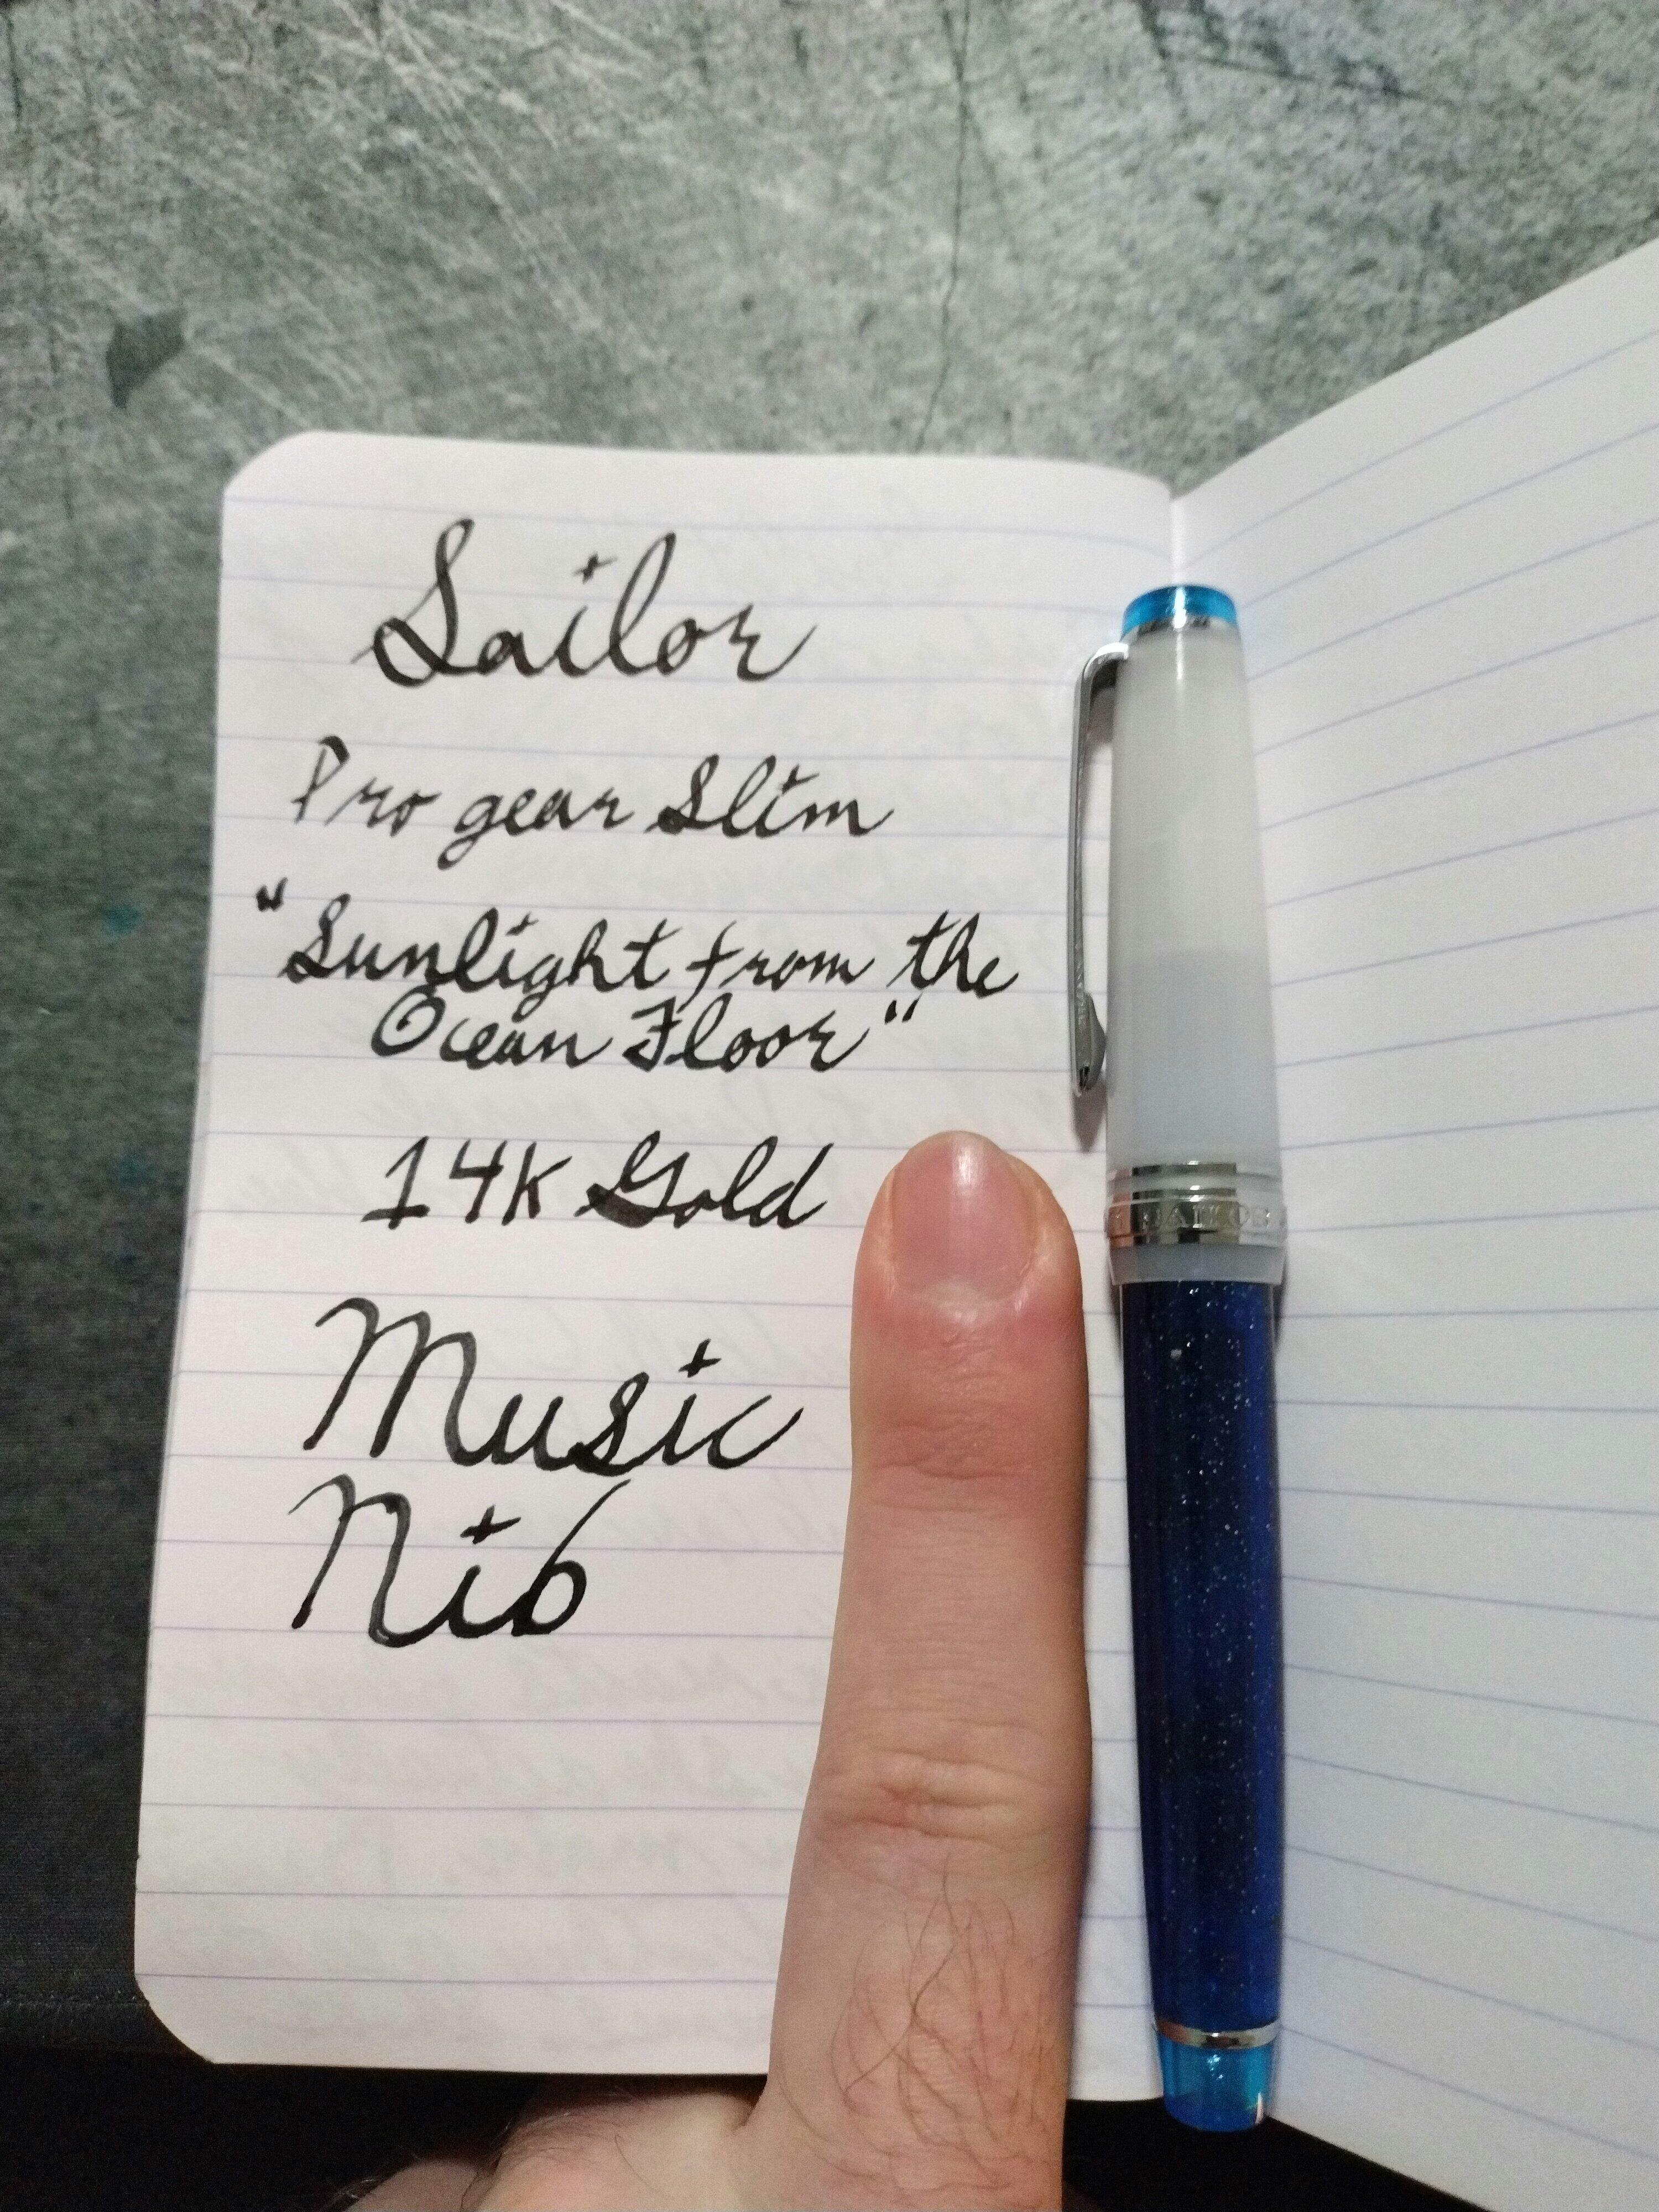 Sailor
Pro gear Slim
"Sunlight from the
Ocean Floor"
14K Gold
Music
Nib
SAILOR